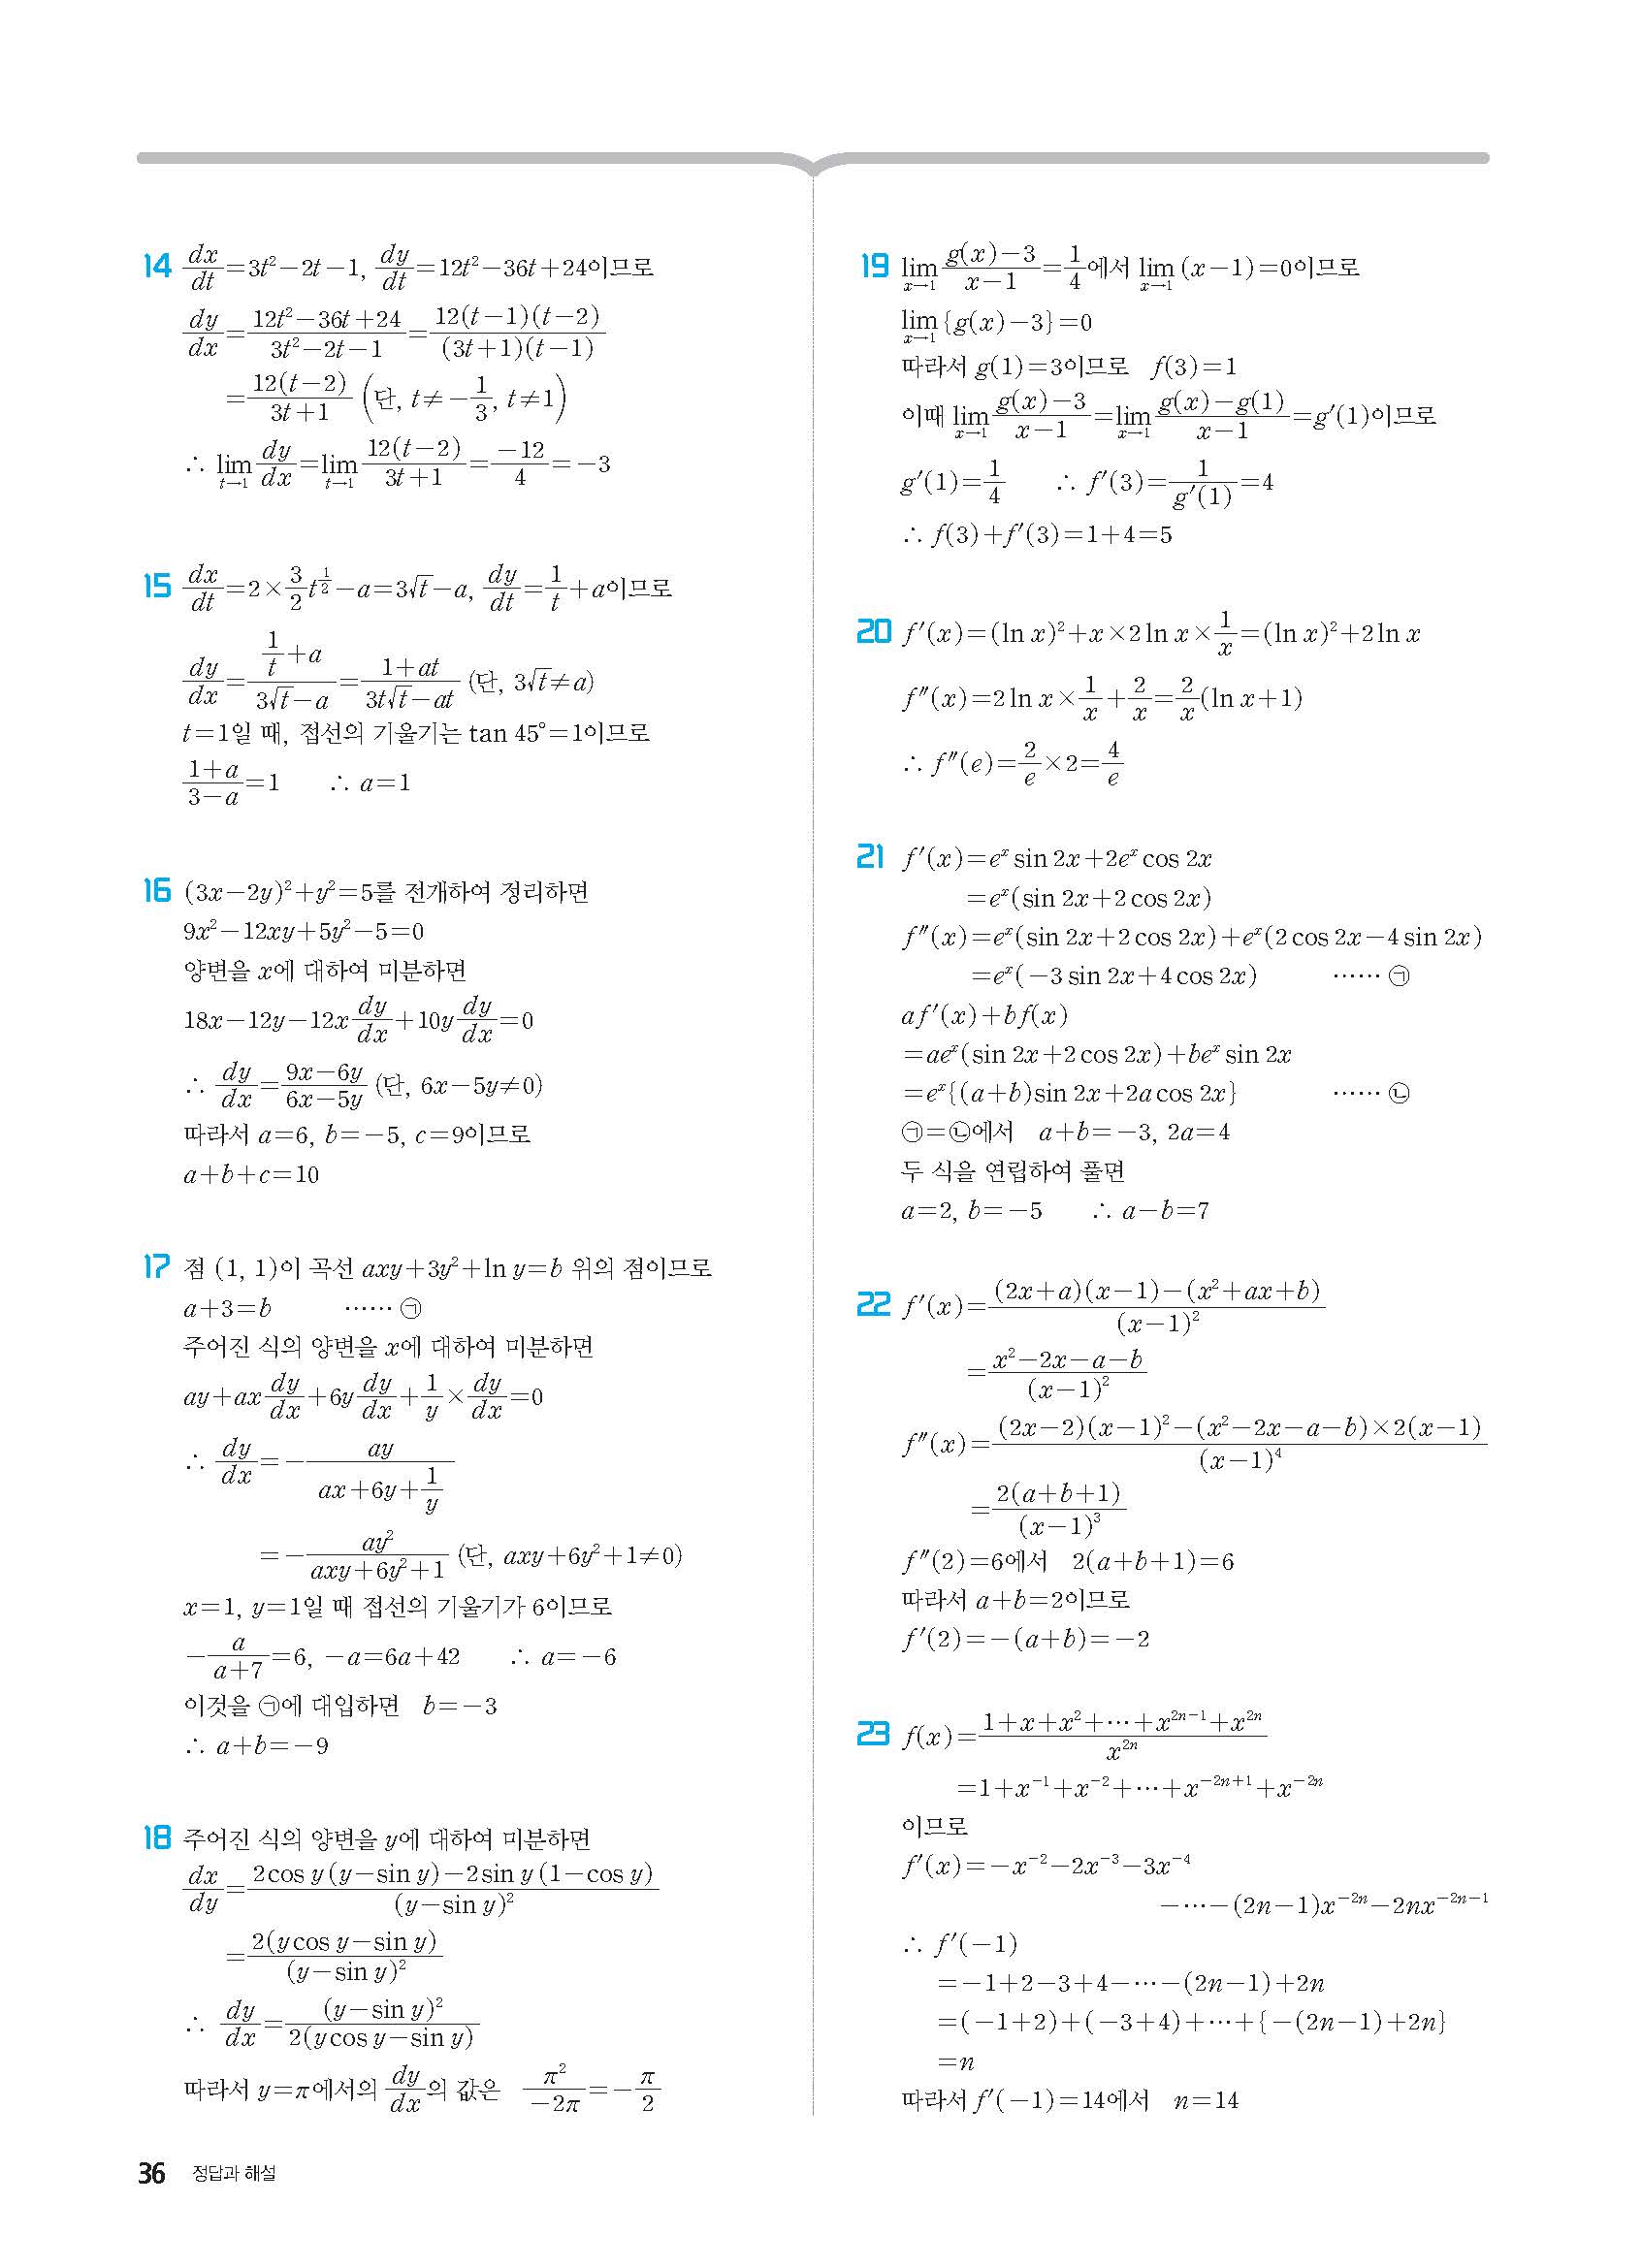 14 dx/dt=3t²-2t-1, dy/dt=12t²-36t+24이므로
dy/dx=(12t²-36t+24)/(3t²-2t-1)=12(t-1)(t-2)/(3t+1)(t-1)
=12(t-2)/(3t+1) (단, t≠-1/3, t≠1)
∴ lim_{t→1} dy/dx=lim_{t→1} 12(t-2)/(3t+1)=-12/4=-3
15 dx/dt=2×3/2 t^{1/2}-a=3√t-a, dy/dt=1/t+a이므로
dy/dx=(1/t+a)/(3√t-a)=(1+at)/(3t√t-at) (단, 3√t≠a)
t=1일 때, 접선의 기울기는 tan 45°=1이므로
(1+a)/(3-a)=1 ∴ a=1
16 (3x-2y)²+y²=5를 전개하여 정리하면
9x²-12xy+5y²-5=0
양변을 x에 대하여 미분하면
18x-12y-12x dy/dx+10y dy/dx=0
∴ dy/dx=(9x-6y)/(6x-5y) (단, 6x-5y≠0)
따라서 a=6, b=-5, c=9이므로
a+b+c=10
17 점 (1, 1)이 곡선 axy+3y²+ln y=b 위의 점이므로
a+3=b …… ㉠
주어진 식의 양변을 x에 대하여 미분하면
ay+ax dy/dx+6y dy/dx+1/y×dy/dx=0
∴ dy/dx=-ay/(ax+6y+1/y)
=-ay²/(axy+6y²+1) (단, axy+6y²+1≠0)
x=1, y=1일 때 접선의 기울기가 6이므로
-a/(a+7)=6, -a=6a+42 ∴ a=-6
이것을 ㉠에 대입하면 b=-3
∴ a+b=-9
18 주어진 식의 양변을 y에 대하여 미분하면
dx/dy={2cos y(y-sin y)-2sin y(1-cos y)}/(y-sin y)²
=2(ycos y-sin y)/(y-sin y)²
∴ dy/dx=(y-sin y)²/2(ycos y-sin y)
따라서 y=π에서의 dy/dx의 값은 π²/-2π=-π/2
19 lim_{x→1} (g(x)-3)/(x-1)=1/4에서 lim_{x→1} (x-1)=0이므로
lim_{x→1} {g(x)-3}=0
따라서 g(1)=3이므로 f(3)=1
이때 lim_{x→1} (g(x)-3)/(x-1)=lim_{x→1} (g(x)-g(1))/(x-1)=g′(1)이므로
g′(1)=1/4 ∴ f′(3)=1/g′(1)=4
∴ f(3)+f′(3)=1+4=5
20 f′(x)=(ln x)²+x×2 ln x×1/x=(ln x)²+2 ln x
f″(x)=2 ln x×1/x+2/x=2/x(ln x+1)
∴ f″(e)=2/e×2=4/e
21 f′(x)=eˣ sin 2x+2eˣ cos 2x
=eˣ(sin 2x+2 cos 2x)
f″(x)=eˣ(sin 2x+2 cos 2x)+eˣ(2 cos 2x-4 sin 2x)
=eˣ(-3 sin 2x+4 cos 2x) …… ㉠
af′(x)+bf(x)
=aeˣ(sin 2x+2 cos 2x)+beˣ sin 2x
=eˣ{(a+b)sin 2x+2a cos 2x} …… ㉡
㉠=㉡에서 a+b=-3, 2a=4
두 식을 연립하여 풀면
a=2, b=-5 ∴ a-b=7
22 f′(x)={(2x+a)(x-1)-(x²+ax+b)}/(x-1)²
=(x²-2x-a-b)/(x-1)²
f″(x)={(2x-2)(x-1)²-(x²-2x-a-b)×2(x-1)}/(x-1)⁴
=2(a+b+1)/(x-1)³
f″(2)=6에서 2(a+b+1)=6
따라서 a+b=2이므로
f′(2)=-(a+b)=-2
23 f(x)=(1+x+x²+⋯+x^{2n-1}+x^{2n})/x^{2n}
=1+x^{-1}+x^{-2}+⋯+x^{-2n+1}+x^{-2n}
이므로
f′(x)=-x^{-2}-2x^{-3}-3x^{-4}
-⋯-(2n-1)x^{-2n}-2nx^{-2n-1}
∴ f′(-1)
=-1+2-3+4-⋯-(2n-1)+2n
=(-1+2)+(-3+4)+⋯+{-(2n-1)+2n}
=n
따라서 f′(-1)=14에서 n=14
36 정답과 해설